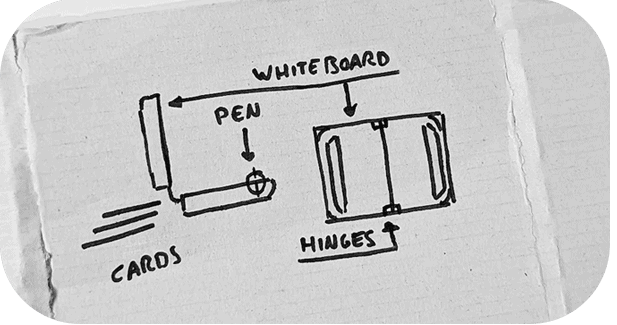 WHITEBOARD
PEN
HINGES
CARDS